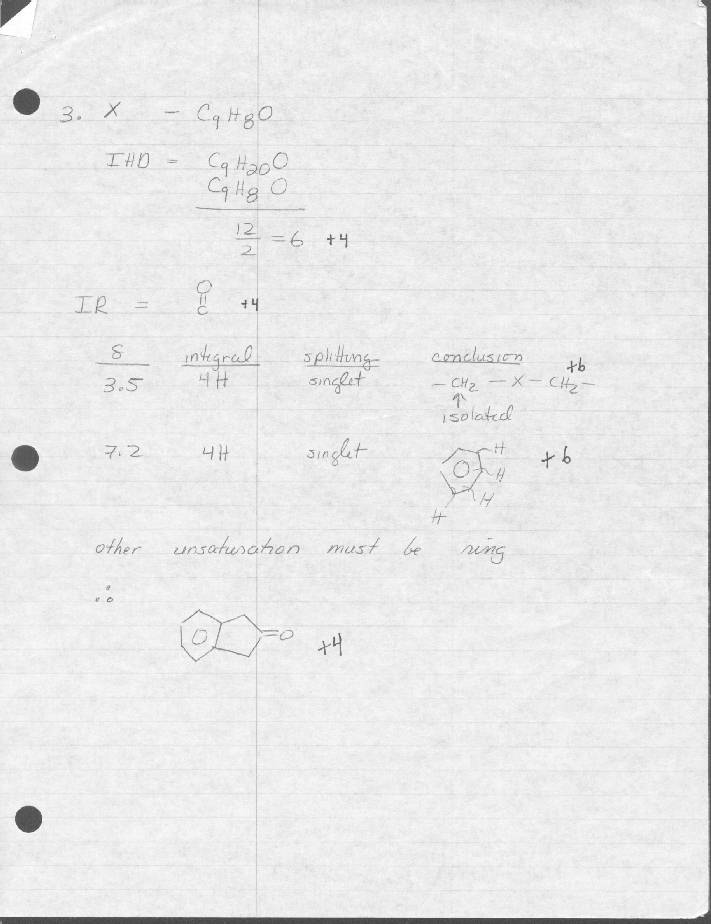 3. X - C9H8O
IHD = C9H20O
C9H8O
12/2 = 6 +4
IR = O
C +4
δ integral splitting conclusion
+6
3.5 4H singlet -CH2-X-CH2-
↑
isolated
7.2 4H singlet H H H H +6
other unsaturation must be ring
∴
=O +4